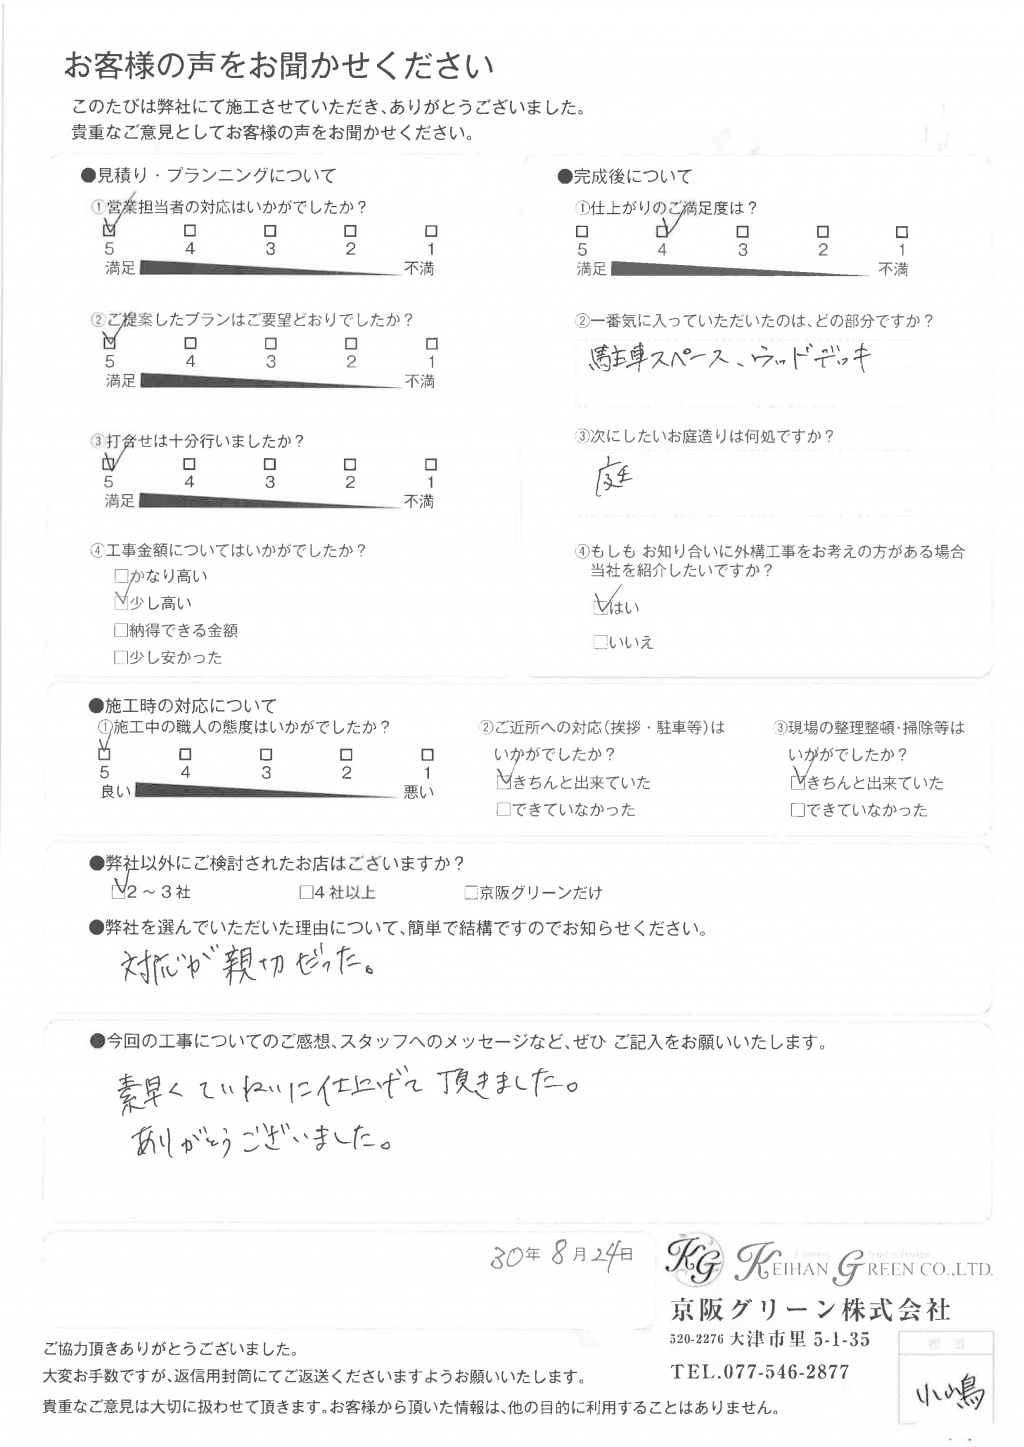 お客様の声をお聞かせください
このたびは弊社にて施工させていただき、ありがとうございました。
貴重なご意見としてお客様の声をお聞かせください。
●見積り・プランニングについて
①営業担当者の対応はいかがでしたか?
5 4 3 2 1
満足 不満
②ご提案したプランはご要望どおりでしたか?
5 4 3 2 1
満足 不満
③打合せは十分行いましたか?
5 4 3 2 1
満足 不満
④工事金額についてはいかがでしたか?
□かなり高い
☑少し高い
□納得できる金額
□少し安かった
●完成後について
①仕上がりのご満足度は?
5 4 3 2 1
満足 不満
②一番気に入っていただいたのは、どの部分ですか?
駐車スペース、ウッドデッキ
③次にしたいお庭造りは何処ですか?
庭
④もしも お知り合いに外構工事をお考えの方がある場合
当社を紹介したいですか?
☑はい
□いいえ
●施工時の対応について
①施工中の職人の態度はいかがでしたか?
5 4 3 2 1
良い 悪い
②ご近所への対応(挨拶・駐車等)は
いかがでしたか?
☑きちんと出来ていた
□できていなかった
③現場の整理整頓・掃除等は
いかがでしたか?
☑きちんと出来ていた
□できていなかった
●弊社以外にご検討されたお店はございますか?
☑2～3社 □4社以上 □京阪グリーンだけ
●弊社を選んでいただいた理由について、簡単で結構ですのでお知らせください。
対応が親切だった。
●今回の工事についてのご感想、スタッフへのメッセージなど、ぜひ ご記入をお願いいたします。
素早くていねいに仕上げて頂きました。
ありがとうございました。
30年 8月24日
KG KEIHAN GREEN CO.,LTD.
京阪グリーン株式会社
520-2276 大津市里 5-1-35
TEL.077-546-2877
担当
小嶋
ご協力頂きありがとうございました。
大変お手数ですが、返信用封筒にてご返送くださいますようお願いいたします。
貴重なご意見は大切に扱わせて頂きます。お客様から頂いた情報は、他の目的に利用することはありません。